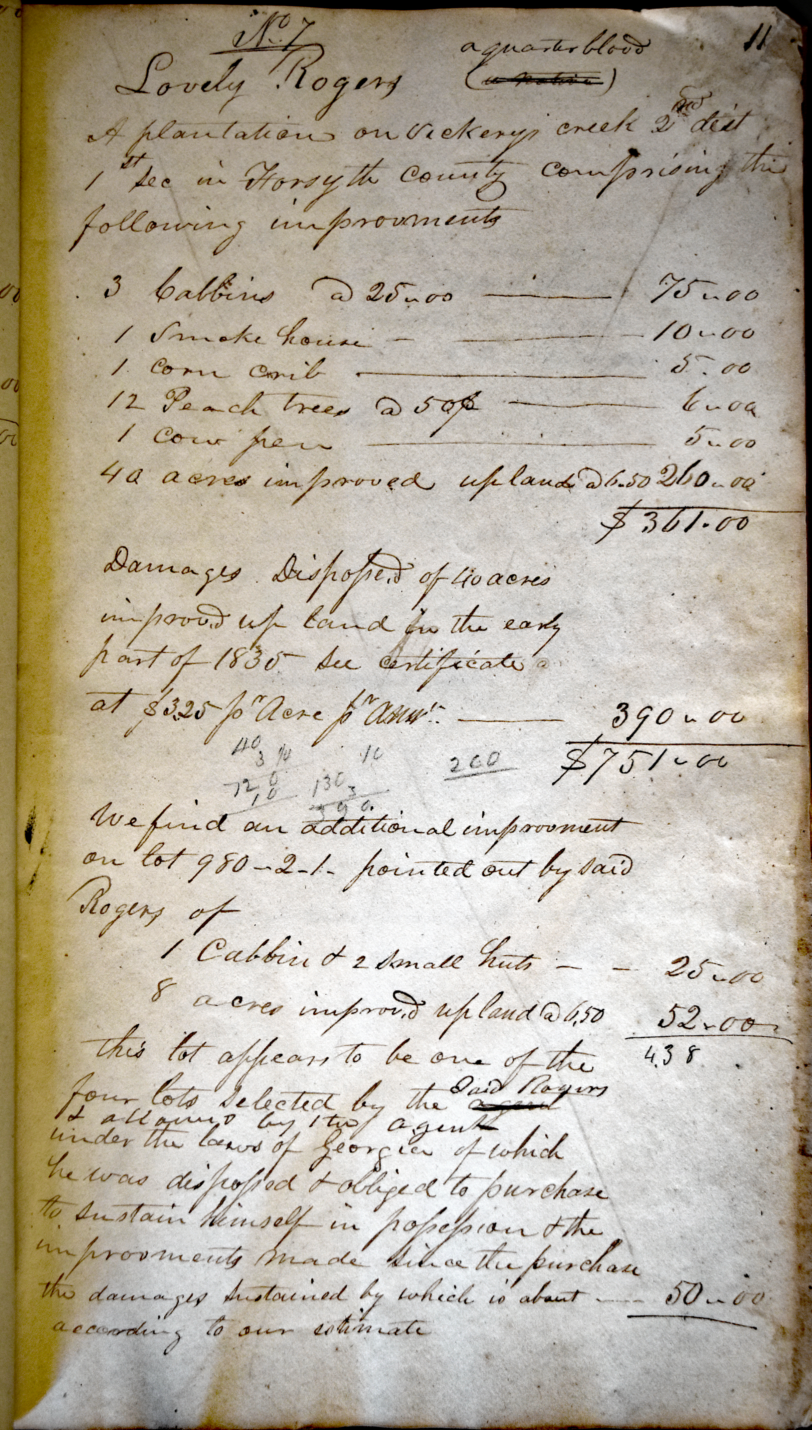 No 7
11
a quarter blood
Lovely Rogers (a native)
A plantation on Vickerys creek 2nd dist
1st Sec in Forsyth county comprising the
following improvments
3 Cabbins @ 25.00 75.00
1 Smoke house 10.00
1 corn crib 5.00
12 Peach trees @ 50¢ 6.00
1 cow pen 5.00
40 acres improved upland @ 6.50 260.00
$361.00
Damages Dispossed of 40 acres
improvd up land in the early
part of 1835 see certificate
at $3.25 pr Acre pr Annm. 390.00
$751.00
40 10
3
120 130 3
10 390
260
We find an additional improvment
on lot 980-2-1- pointed out by said
Rogers of
1 Cabbin & 2 Small huts 25.00
8 acres improvd upland @ 6.50 52.00
438
this lot appears to be one of the
four lots selected by the agent said Rogers
& allowed by the agent
under the laws of Georgia of which
he was dispossed & obliged to purchase
to sustain himself in possession & the
improvments made since the purchase
the damages sustained by which is about 50.00
according to our estimate